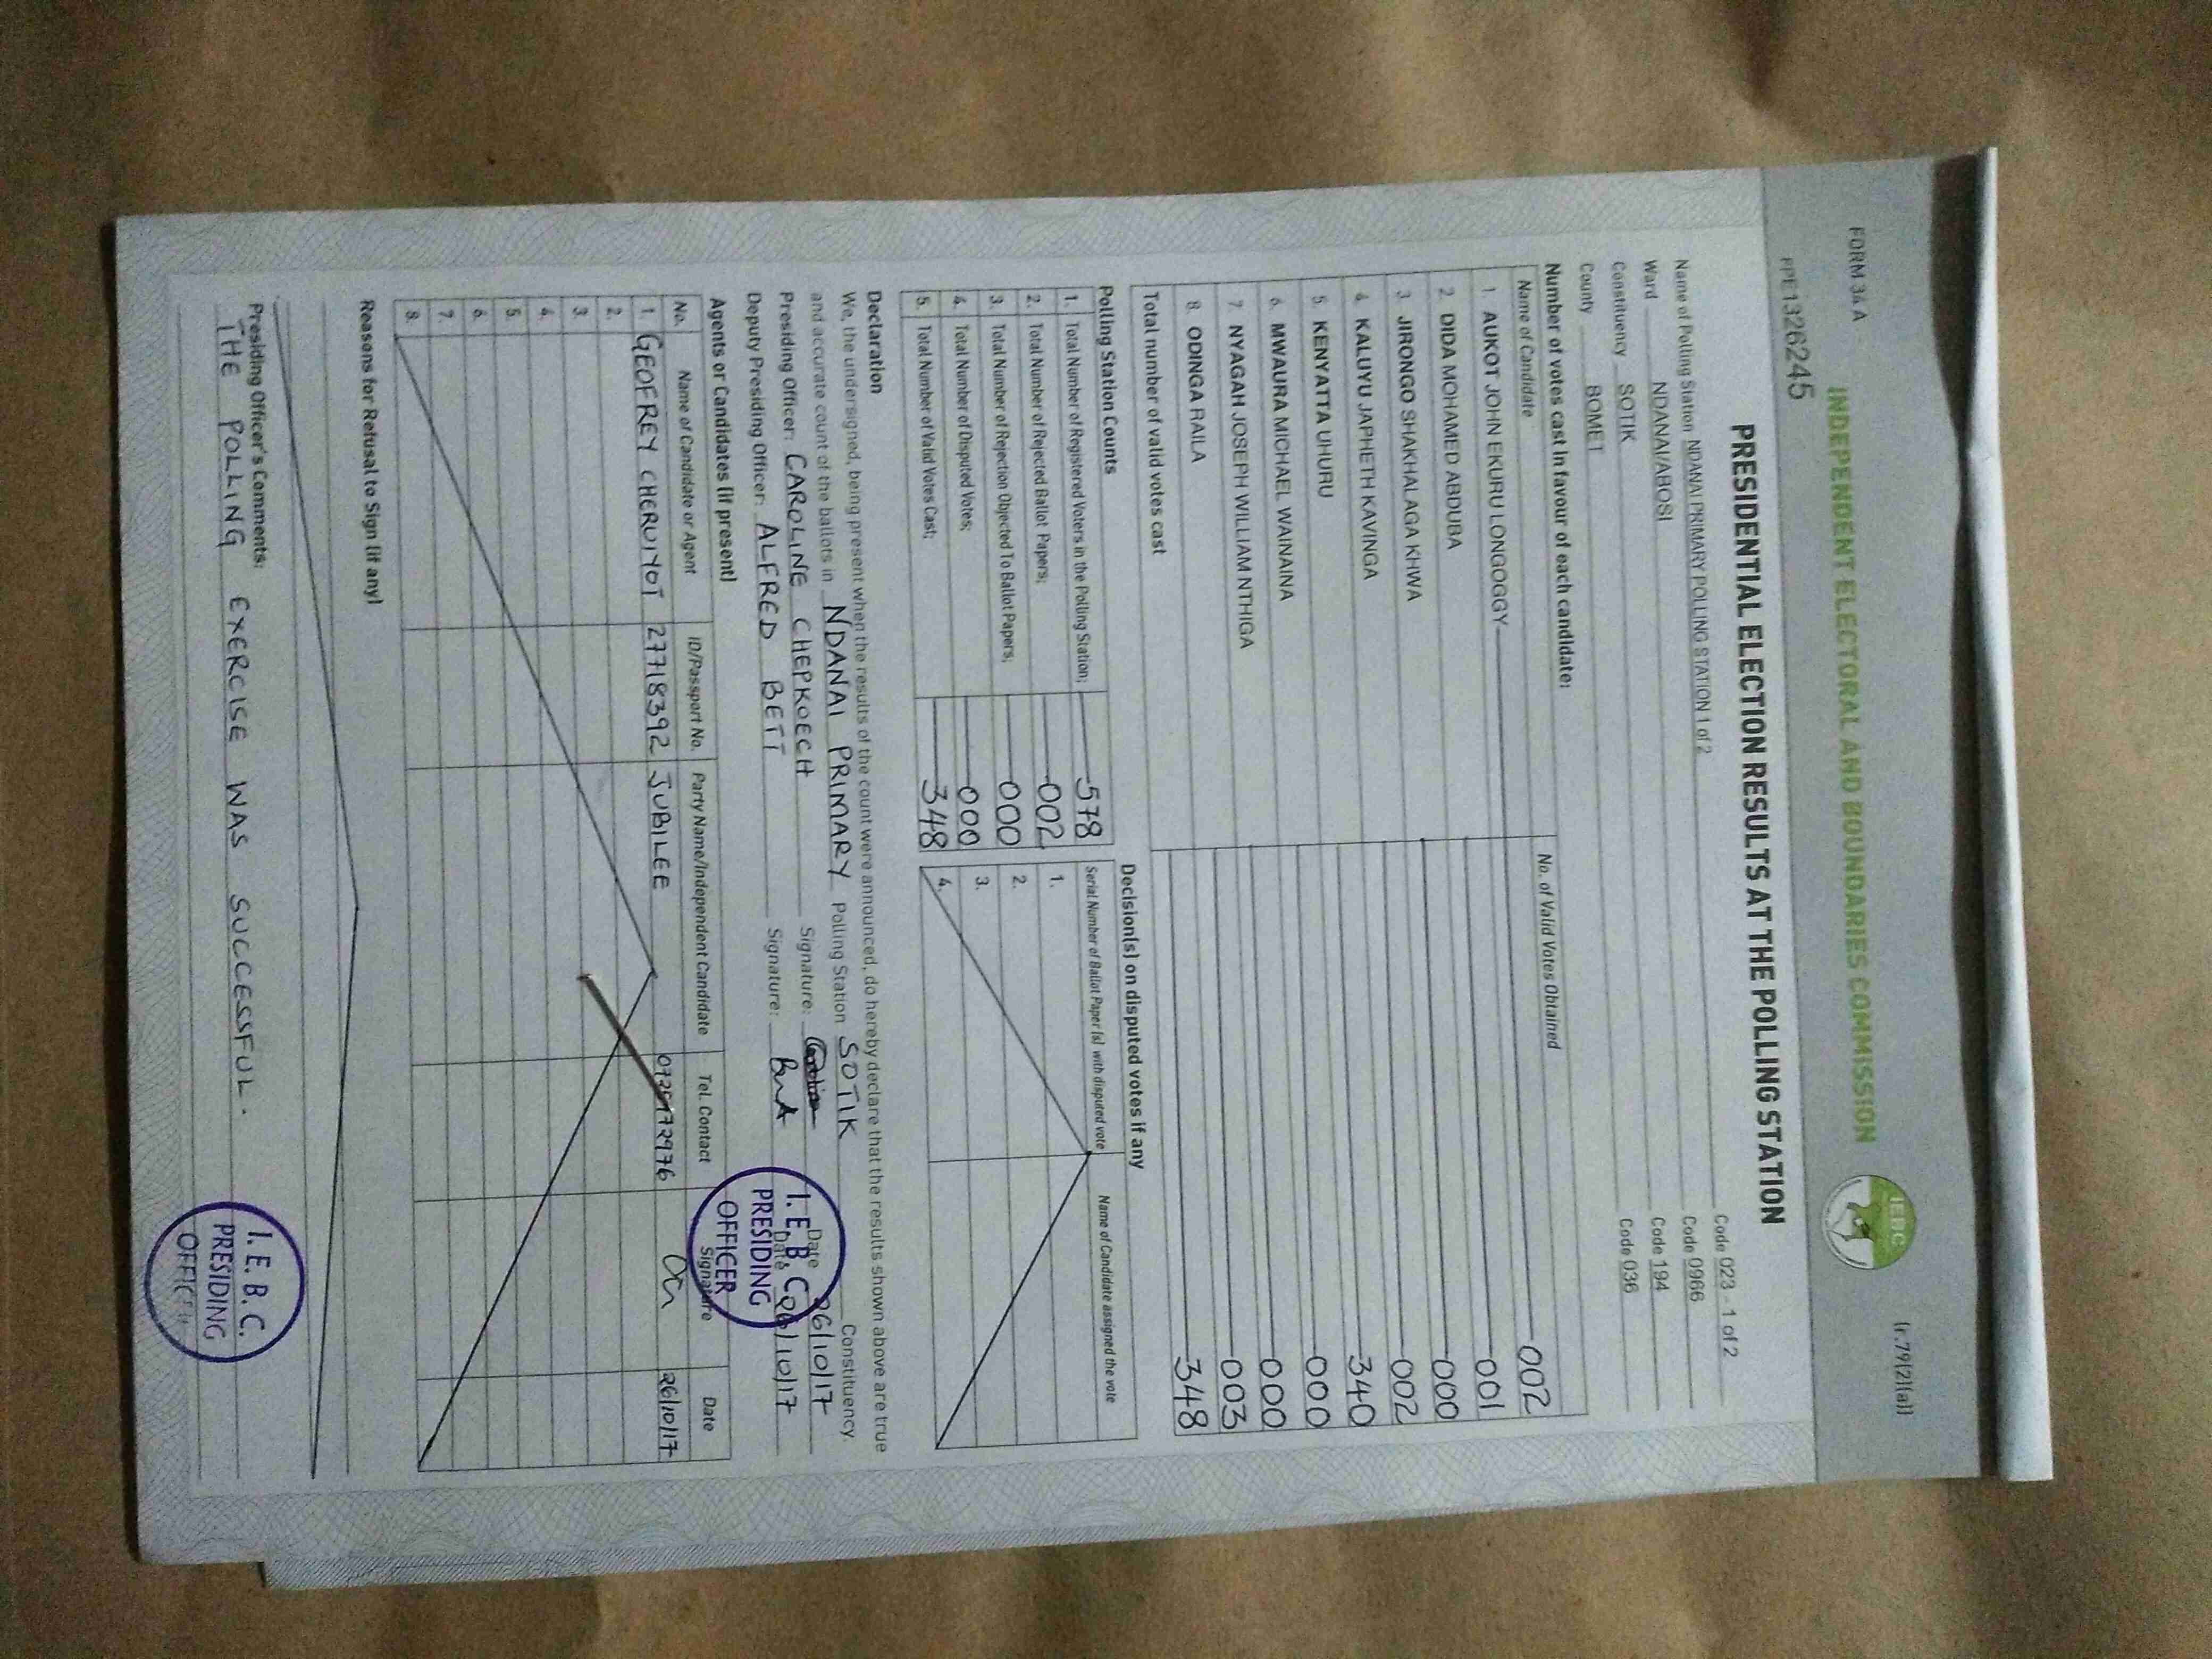 FORM 34A
(r.79(2)(a))
INDEPENDENT ELECTORAL AND BOUNDARIES COMMISSION
IEBC
PPE1326245
PRESIDENTIAL ELECTION RESULTS AT THE POLLING STATION
Name of Polling Station NDANAI PRIMARY POLLING STATION 1 of 2 Code 023 - 1 of 2
Ward NDANAI/ABOSI Code 0966
Constituency SOTIK Code 194
County BOMET Code 036
Number of votes cast in favour of each candidate:
Name of Candidate No. of Valid Votes Obtained
1. AUKOT JOHN EKURU LONGOGGY 002
2. DIDA MOHAMED ABDUBA 001
3. JIRONGO SHAKHALAGA KHWA 000
4. KALUYU JAPHETH KAVINGA 002
5. KENYATTA UHURU 340
6. MWAURA MICHAEL WAINAINA 000
7. NYAGAH JOSEPH WILLIAM NTHIGA 000
8. ODINGA RAILA 003
Total number of valid votes cast 348
Polling Station Counts
1. Total Number of Registered Voters in the Polling Station; 578
2. Total Number of Rejected Ballot Papers; 002
3. Total Number of Rejection Objected To Ballot Papers; 000
4. Total Number of Disputed Votes; 000
5. Total Number of Valid Votes Cast; 348
Decision(s) on disputed votes if any
Serial Number of Ballot Paper (s) with disputed vote Name of Candidate assigned the vote
1.
2.
3.
4.
Declaration
We, the undersigned, being present when the results of the count were announced, do hereby declare that the results shown above are true
and accurate count of the ballots in NDANAI PRIMARY Polling Station SOTIK Constituency.
Presiding Officer: CAROLINE CHEPKOECH Signature: Date 26/10/17
Deputy Presiding Officer: ALFRED BETT Signature: Date 26/10/17
I.E.B.C.
PRESIDING
OFFICER
Agents or Candidates (if present)
No. Name of Candidate or Agent ID/Passport No. Party Name/Independent Candidate Tel. Contact Signature Date
1. GEOFREY CHERUIYOT 27718392 JUBILEE 26/10/17
2.
3.
4.
5.
6.
7.
8.
Reasons for Refusal to Sign (if any)
Presiding Officer's Comments:
THE POLLING EXERCISE WAS SUCCESSFUL.
I.E.B.C.
PRESIDING
OFFICER